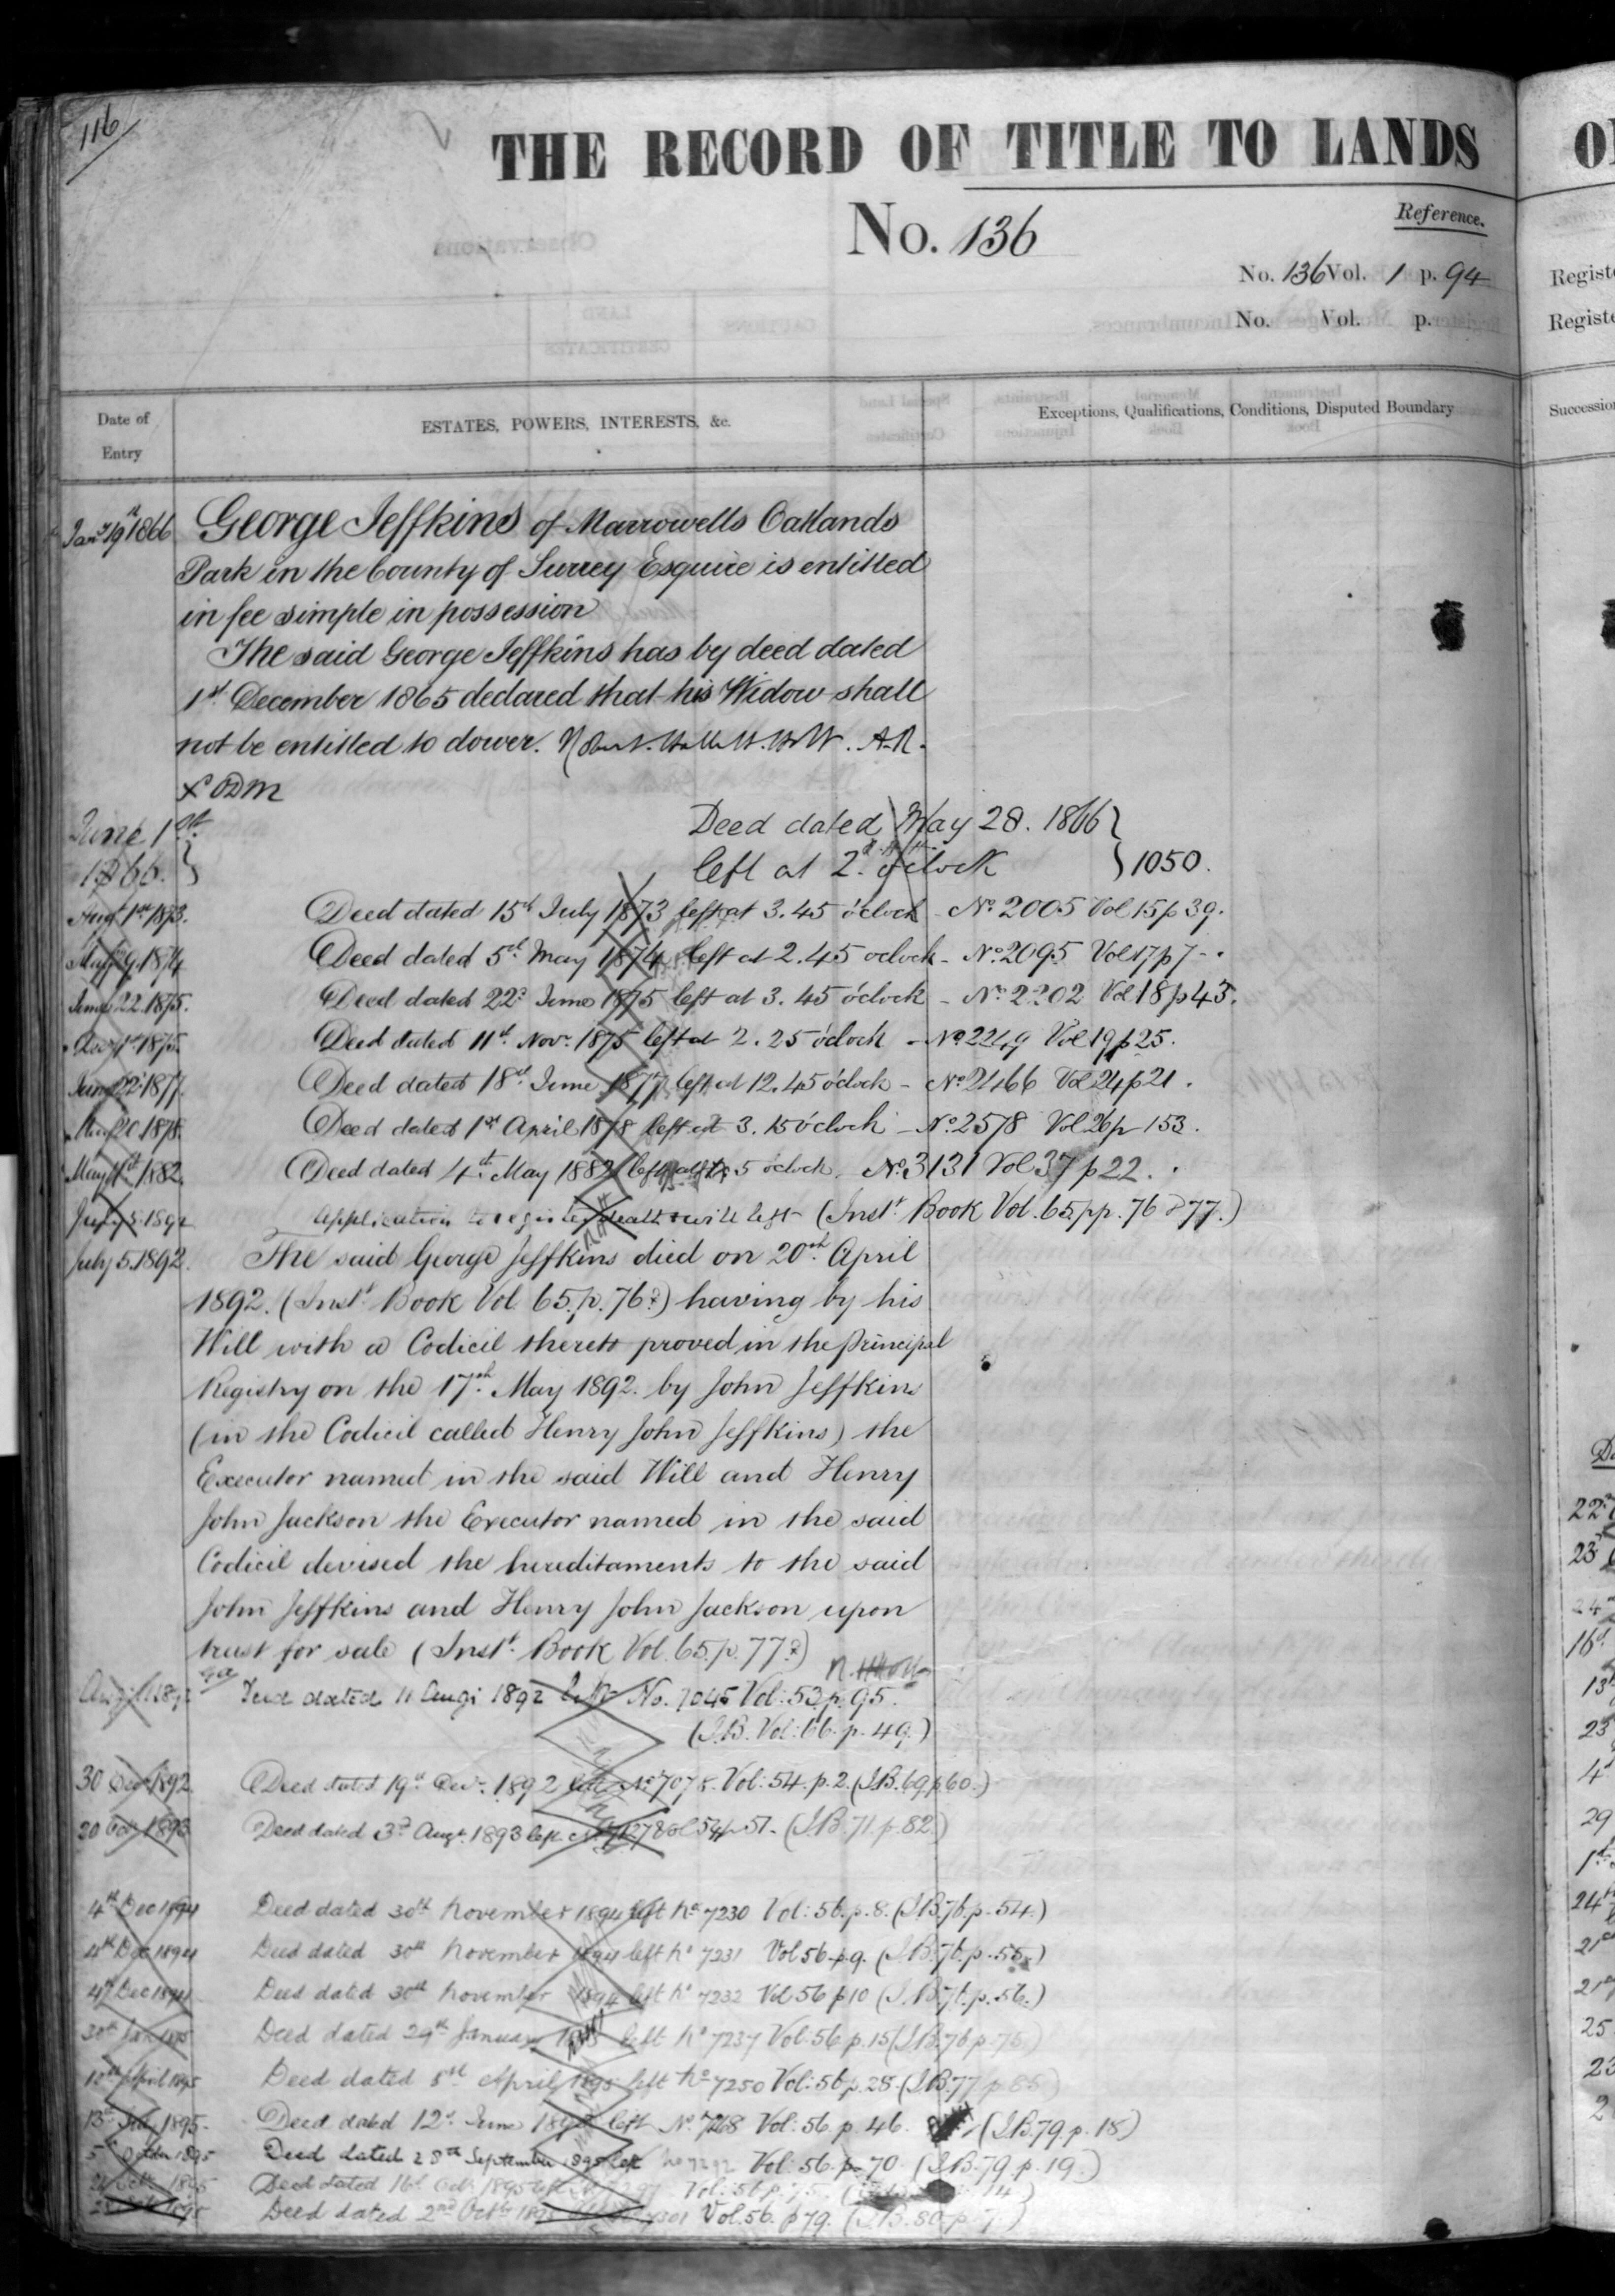 116
THE RECORD OF TITLE TO LANDS
No. 136
Reference.
No. 136 Vol. 1 p. 94
No. Vol. p.
Date of Entry
ESTATES, POWERS, INTERESTS, &c.
Exceptions, Qualifications, Conditions, Disputed Boundary
1866 George Jeffkins of Marrowells Oatlands
Park in the County of Surrey Esquire is entitled
in fee simple in possession
The said George Jeffkins has by deed dated
1st December 1865 declared that his Widow shall
not be entitled to dower.
June 1st Deed dated May 28. 1866 }
1866. } left at 2. o'clock } 1050.
Augt 1st 1873. Deed dated 15th July 1873 left at 3.45 o'clock - No. 2005 Vol 15 p 39.
1874 Deed dated 5th May 1874 left at 2.45 oclock - No. 2095 Vol 17 p 7 -
June 22. 1875. Deed dated 22d June 1875 left at 3.45 o'clock - No. 2202 Vol 18 p 43.
1875. Deed dated 11th Novr. 1875 left at 2.25 o'clock - No. 2249 Vol 19 p 25.
June 22 1877. Deed dated 18th June 1877 left at 12.45 o'clock - No. 2466 Vol 24 p 21.
1878. Deed dated 1st April 1878 left at 3.15 o'clock - No. 2578 Vol 26 p 153.
May 1882. Deed dated 4th May 1882 left 5 o'clock. No. 3131 Vol 37 p 22.
July 5 1892 Application to register death & will left (Instt. Book Vol. 65 pp. 76 & 77.)
July 5. 1892. The said George Jeffkins died on 20th. April
1892. (Instt. Book Vol. 65. p. 76) having by his
Will with a Codicil thereto proved in the Principal
Registry on the 17th. May 1892. by John Jeffkins
(in the Codicil called Henry John Jeffkins) the
Executor named in the said Will and Henry
John Jackson the Executor named in the said
Codicil devised the hereditaments to the said
John Jeffkins and Henry John Jackson upon
trust for sale (Instt. Book Vol. 65. p. 77)
1892 Deed dated 11 Augt 1892 No. 7045 Vol: 53. p. 95.
(I.B. Vol: 66. p. 49.)
30 Decr 1892 Deed dated 19th Decr. 1892 left No. 7078. Vol: 54. p. 2. (I.B. 69 p 60.)
20 1893 Deed dated 3d Augt. 1893 left Vol 54 p 51. (I.B. 71. p. 82)
4th Dec 1894 Deed dated 30th November 1894 left No 7230 Vol: 56. p. 8. (I.B. 76. p. 54.)
4th Dec 1894 Deed dated 30th November 1894 left No 7231 Vol 56 p. 9. (I.B. 76. p. 55.)
4th Dec 1894 Deed dated 30th November 1894 left No 7232 Vol 56 p 10 (I.B. 76. p. 56.)
30th Jan 1895 Deed dated 29th January 1895 left No 7237 Vol. 56 p. 15 (I.B. 76 p. 75)
April 1895 Deed dated 8th April 1895 left No 7250 Vol: 56 p. 28. (I.B. 77 p. 85)
13th 1895. Deed dated 12th. June 1895 left No. 7268 Vol: 56. p. 46. (I.B. 79. p. 18)
5th October 1895 Deed dated 28th September 1895 left No 7292 Vol: 56. p. 70. (I.B. 79. p. 19.)
1895 Deed dated 16th Octr 1895 left Vol: 56 p. 75.
1895 Deed dated 2nd Octbr 1895 7301 Vol. 56. p 79. (I.B. 80. p.